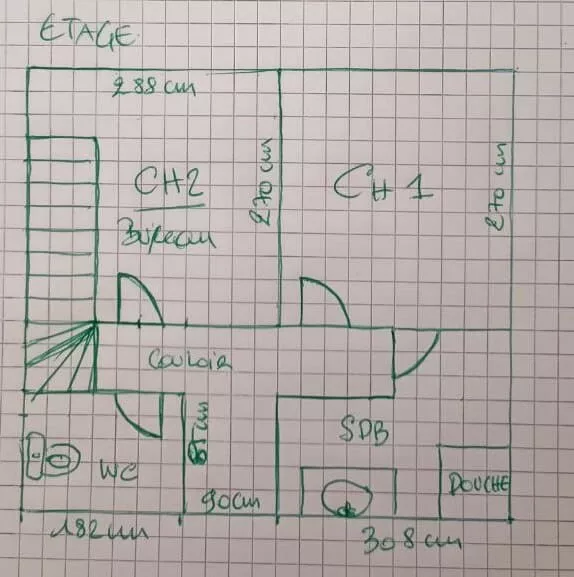 ETAGE
288 cm
CH2
Bureau
270 cm
CH 1
270 cm
Couloir
WC
90cm
SDB
DOUCHE
182cm
308 cm